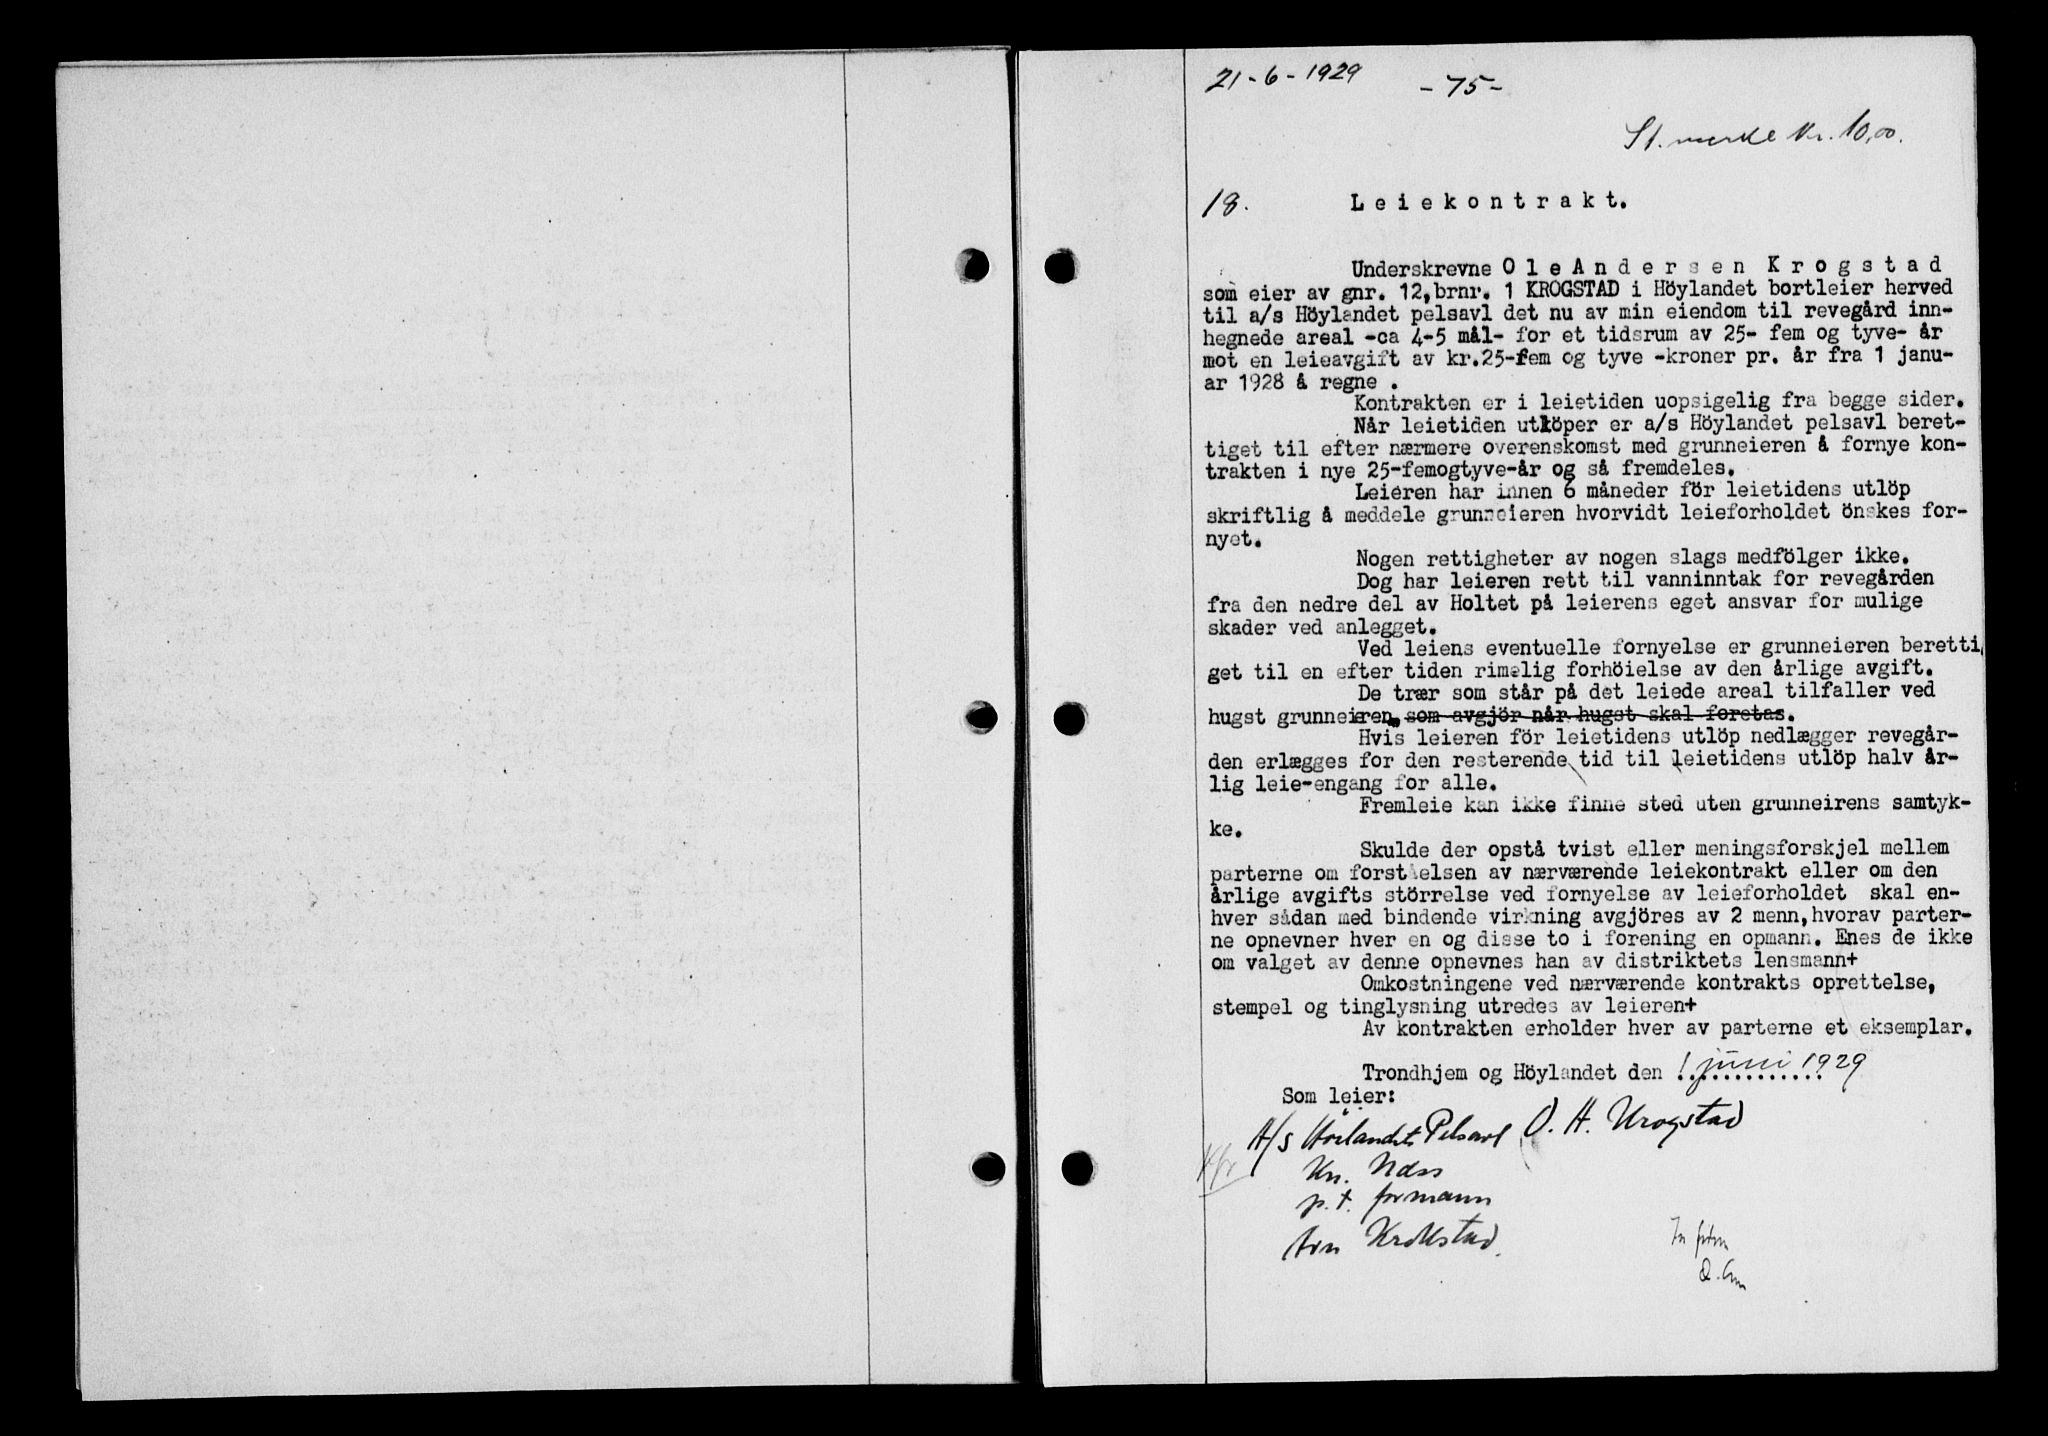 21-6-1929
-75-
St. merke kr. 10,00.
18. Leiekontrakt.
Underskrevne Ole Andersen Krogstad
som eier av gnr. 12, brnr. 1 KROGSTAD i Höylandet bortleier herved
til a/s Höylandet pelsavl det nu av min eiendom til revegård inn-
hegnede areal -ca 4-5 mål- for et tidsrum av 25- fem og tyve- år
mot en leieavgift av kr.25-fem og tyve -kroner pr. år fra 1 janu-
ar 1928 å regne .
Kontrakten er i leietiden uopsigelig fra begge sider.
Når leietiden utlöper er a/s Höylandet pelsavl beret-
tiget til efter nærmere overenskomst med grunneieren å fornye kon-
trakten i nye 25-femogtyve-år og så fremdeles.
Leieren har innen 6 måneder för leietidens utlöp
skriftlig å meddele grunneieren hvorvidt leieforholdet önskes for-
nyet.
Nogen rettigheter av nogen slags medfölger ikke.
Dog har leieren rett til vanninntak for revegården
fra den nedre del av Holtet på leierens eget ansvar for mulige
skader ved anlegget.
Ved leiens eventuelle fornyelse er grunneieren beretti
get til en efter tiden rimelig forhöielse av den årlige avgift.
De trær som står på det leiede areal tilfaller ved
hugst grunneieren, som avgjör når hugst skal foretas.
Hvis leieren för leietidens utlöp nedlægger revegår-
den erlægges for den resterende tid til leietidens utlöp halv år-
lig leie-engang for alle.
Fremleie kan ikke finne sted uten grunneirens samtyk-
ke.
Skulde der opstå tvist eller meningsforskjel mellem
parterne om forståelsen av nærværende leiekontrakt eller om den
årlige avgifts störrelse ved fornyelse av leieforholdet skal en-
hver sådan med bindende virkning avgjöres av 2 menn, hvorav parter-
ne opnevner hver en og disse to i forening en opmann. Enes de ikke
om valget av denne opnevnes han av distriktets lensmann+
Omkostningene ved nærværende kontrakts oprettelse,
stempel og tinglysning utredes av leieren+
Av kontrakten erholder hver av parterne et eksemplar.
Trondhjem og Höylandet den 1 juni 1929
Som leier:
A/s Höilandets Pelsavl O. A. Krogstad
Kn. Næss
p.t. formann
Krokstad.